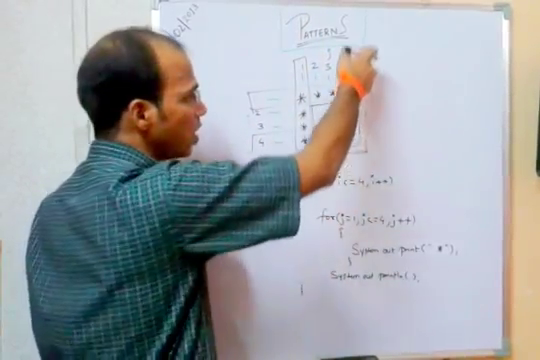 02/2013
PATTERNS
j
1 2 3
* * *
2 *
3 *
4 *
i<=4, i++)
for(j=1, j<=4, j++)
{
System.out.print("*");
}
System.out.println();